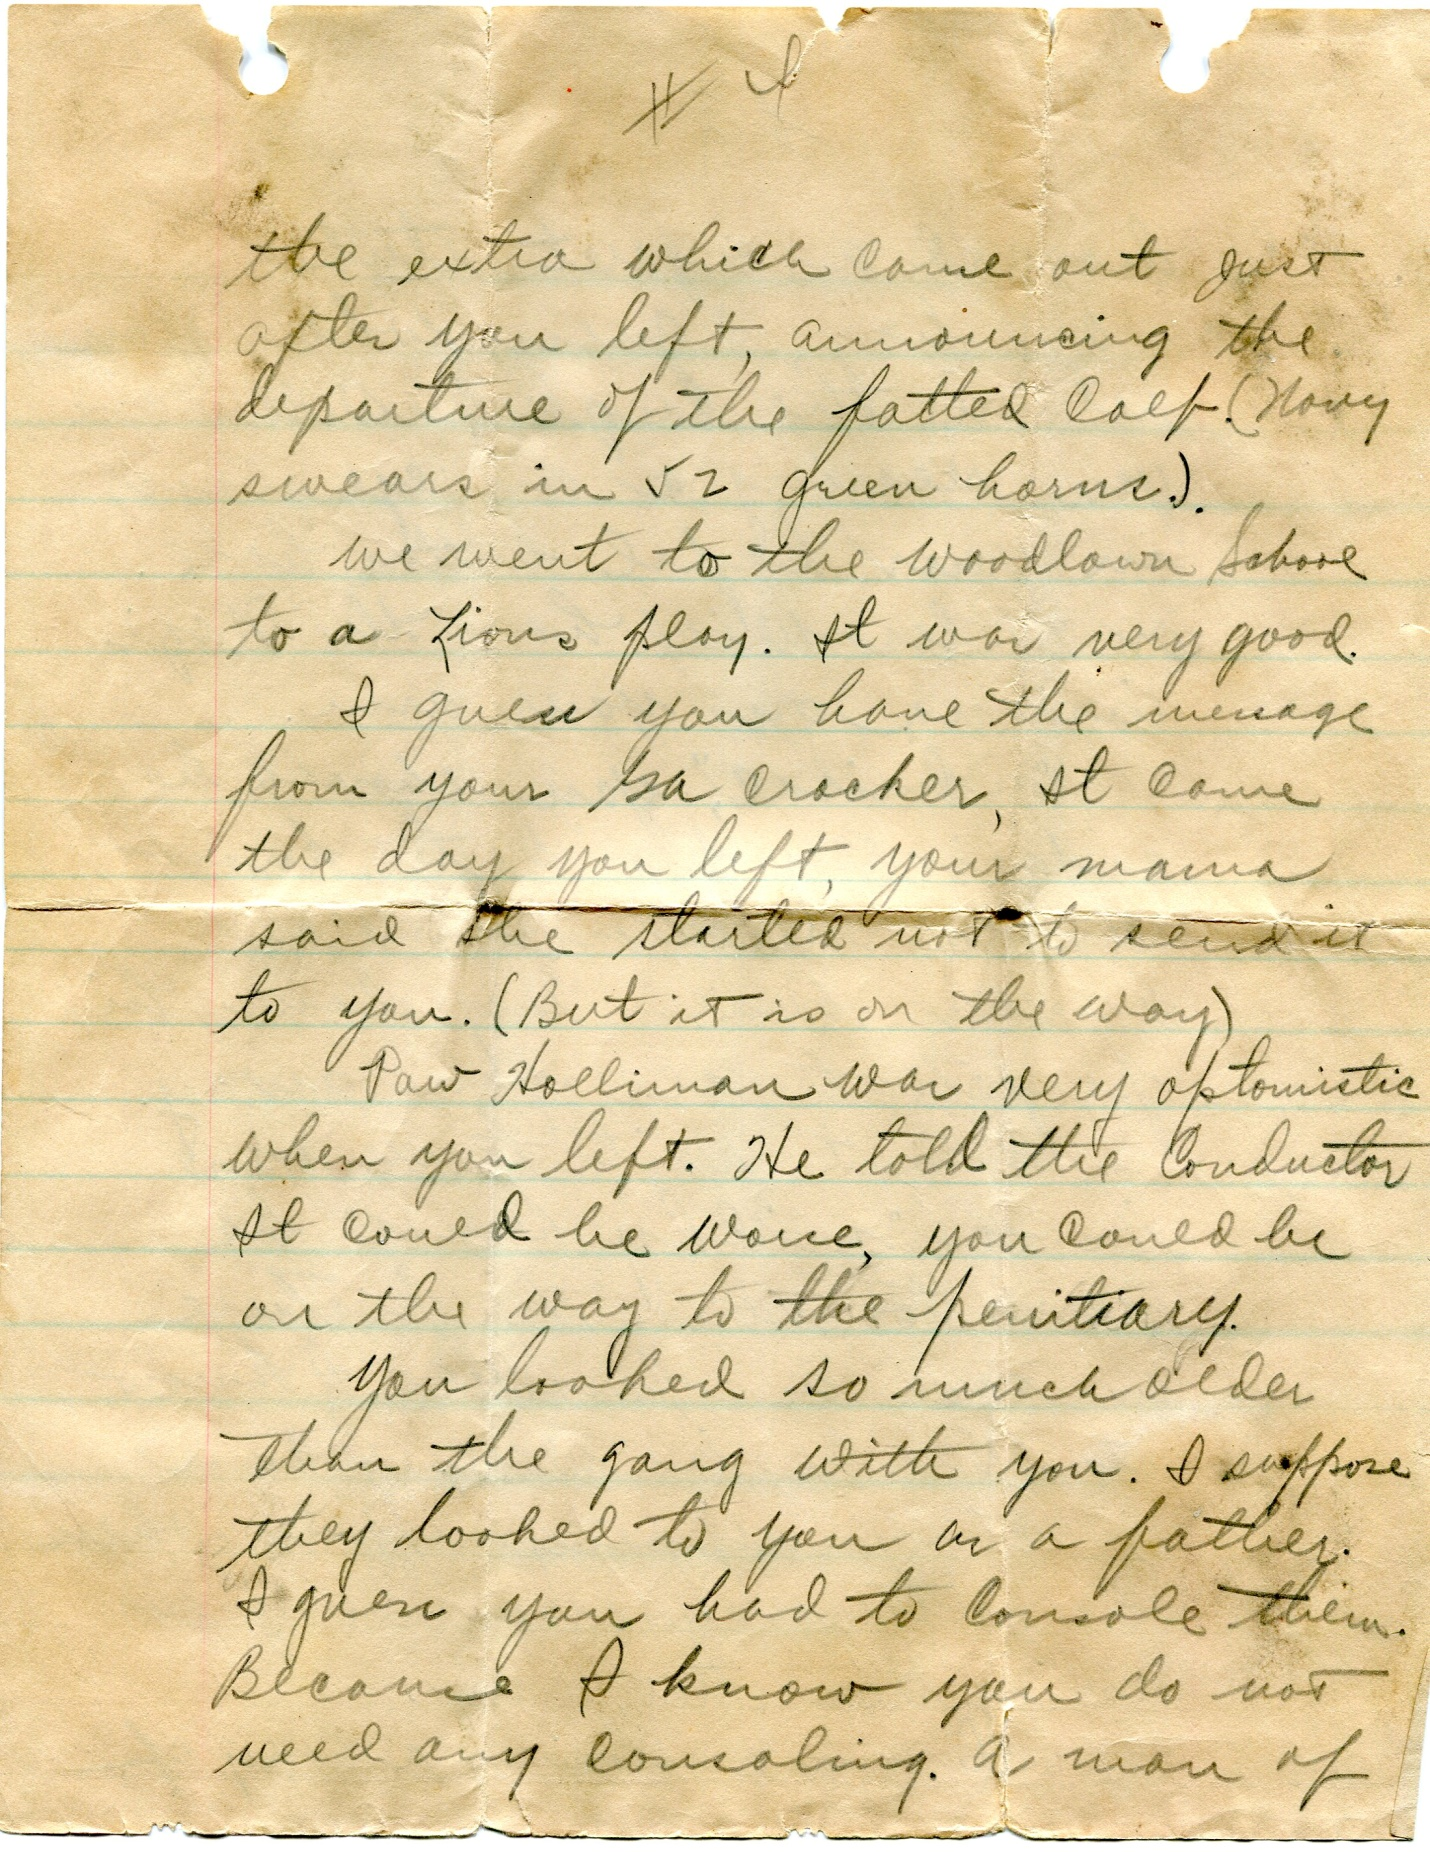 the extra which came out just
after you left, announcing the
departure of the fatted Calf. (Navy
swears in 52 green horns.).
we went to the Woodlawn School
to a Lions play. It was very good.
I guess you have the message
from your Ga Cracker, It came
the day you left, your mama
said she started not to send it
to you. (But it is on the way)
Paw Holliman was very optomistic
when you left. He told the Conductor
It could be worse, you could be
on the way to the penitiary.
You looked so much older
than the gang with you. I suppose
they looked to you as a father.
I guess you had to console them.
Because I know you do not
need any consoling. A man of